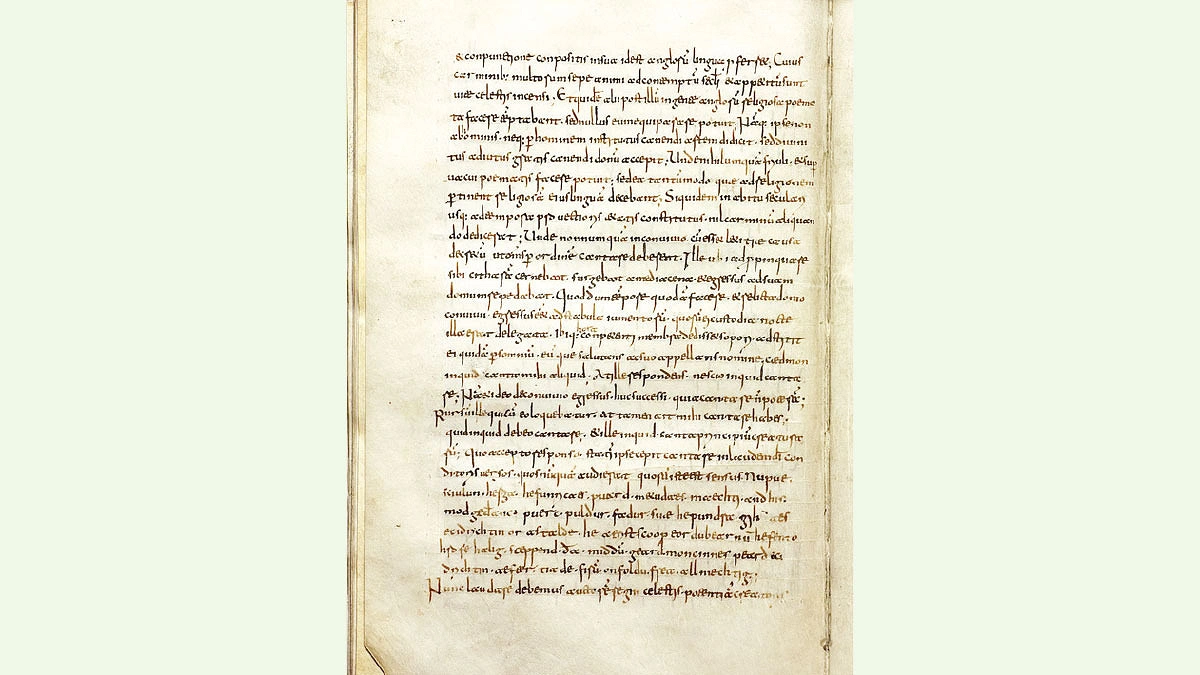 & conpunctione conpositis insua idest anglosū lingua pferret, Cuius
carminib; multorum sepe animi adcontemptū secli & adpetitū sunt
uitae celestis incensi. Et quidē alii post illū ingente anglorū religiosa poema
ta facere tēptabant, sed nullus eum equiparare potuit, Naq; ipse non
abhominib; neq; p hominem institutus canendi artem didicit, sed diuini
tus adiutus gratis canendi donū accepit, Unde nihil umquā friuoli, & sup
uacui poematis facere potuit, sed ea tantū modo quae adreligionem
ptinent religiosā eius linguā decebant, Siquidem in abitu seculari
usq; ad tempora puectioris aetatis constitutus nil carminū aliquan
do dedicerat, Unde non numquā in conuiuio, cū esset laetitiae causa
decretū ut omnis p ordinē cantare deberent, Ille ubi adppinquare
sibi citharā cernebat, surgebat a media cena & egressus ad suam
domum repedabat. Quod dum tēpore quodā faceret, & relicta domo
conuiuii egressus eēt ad stabula iumentorū, quorū ei custodia nocte
illa erat delegata, ibiq; hora conpetenti membra dedisset sopori, adstitit
ei quidā p somniū, eūque salutans ac suo appellans nomine, caedmon
inquid canta mihi aliquid, At ille respondens, nescio inquid canta
re, Nā & ideo de conuiuio egressus huc successi, quia cantare n poterā,
Rursū ille qui cū eo loquebatur, at tamen ait mihi cantare habes,
quid inquid debeo cantare, & ille inquid canta principiū creatura
rū, Quo accepto responso, statī ipse cepit cantare in laudem dī con
ditoris uersos, quos nūquā audierat quorū iste est sensus, Nu pue
sciulun herga hefunricaes puard metudaes maechti, and his
modgedanc puerc puldur fadur, sue he pundra gihuaes
eci drichtin or astalde, he aerist scoop eordu bearnū hefen to
hrofe halig sceppend, da middū geard moncinnes peard eci
drichtin aefter tiade firū onfoldu frea allmechtig;
Nunc laudare debemus auctorē regni celestis, potentiā creatoris